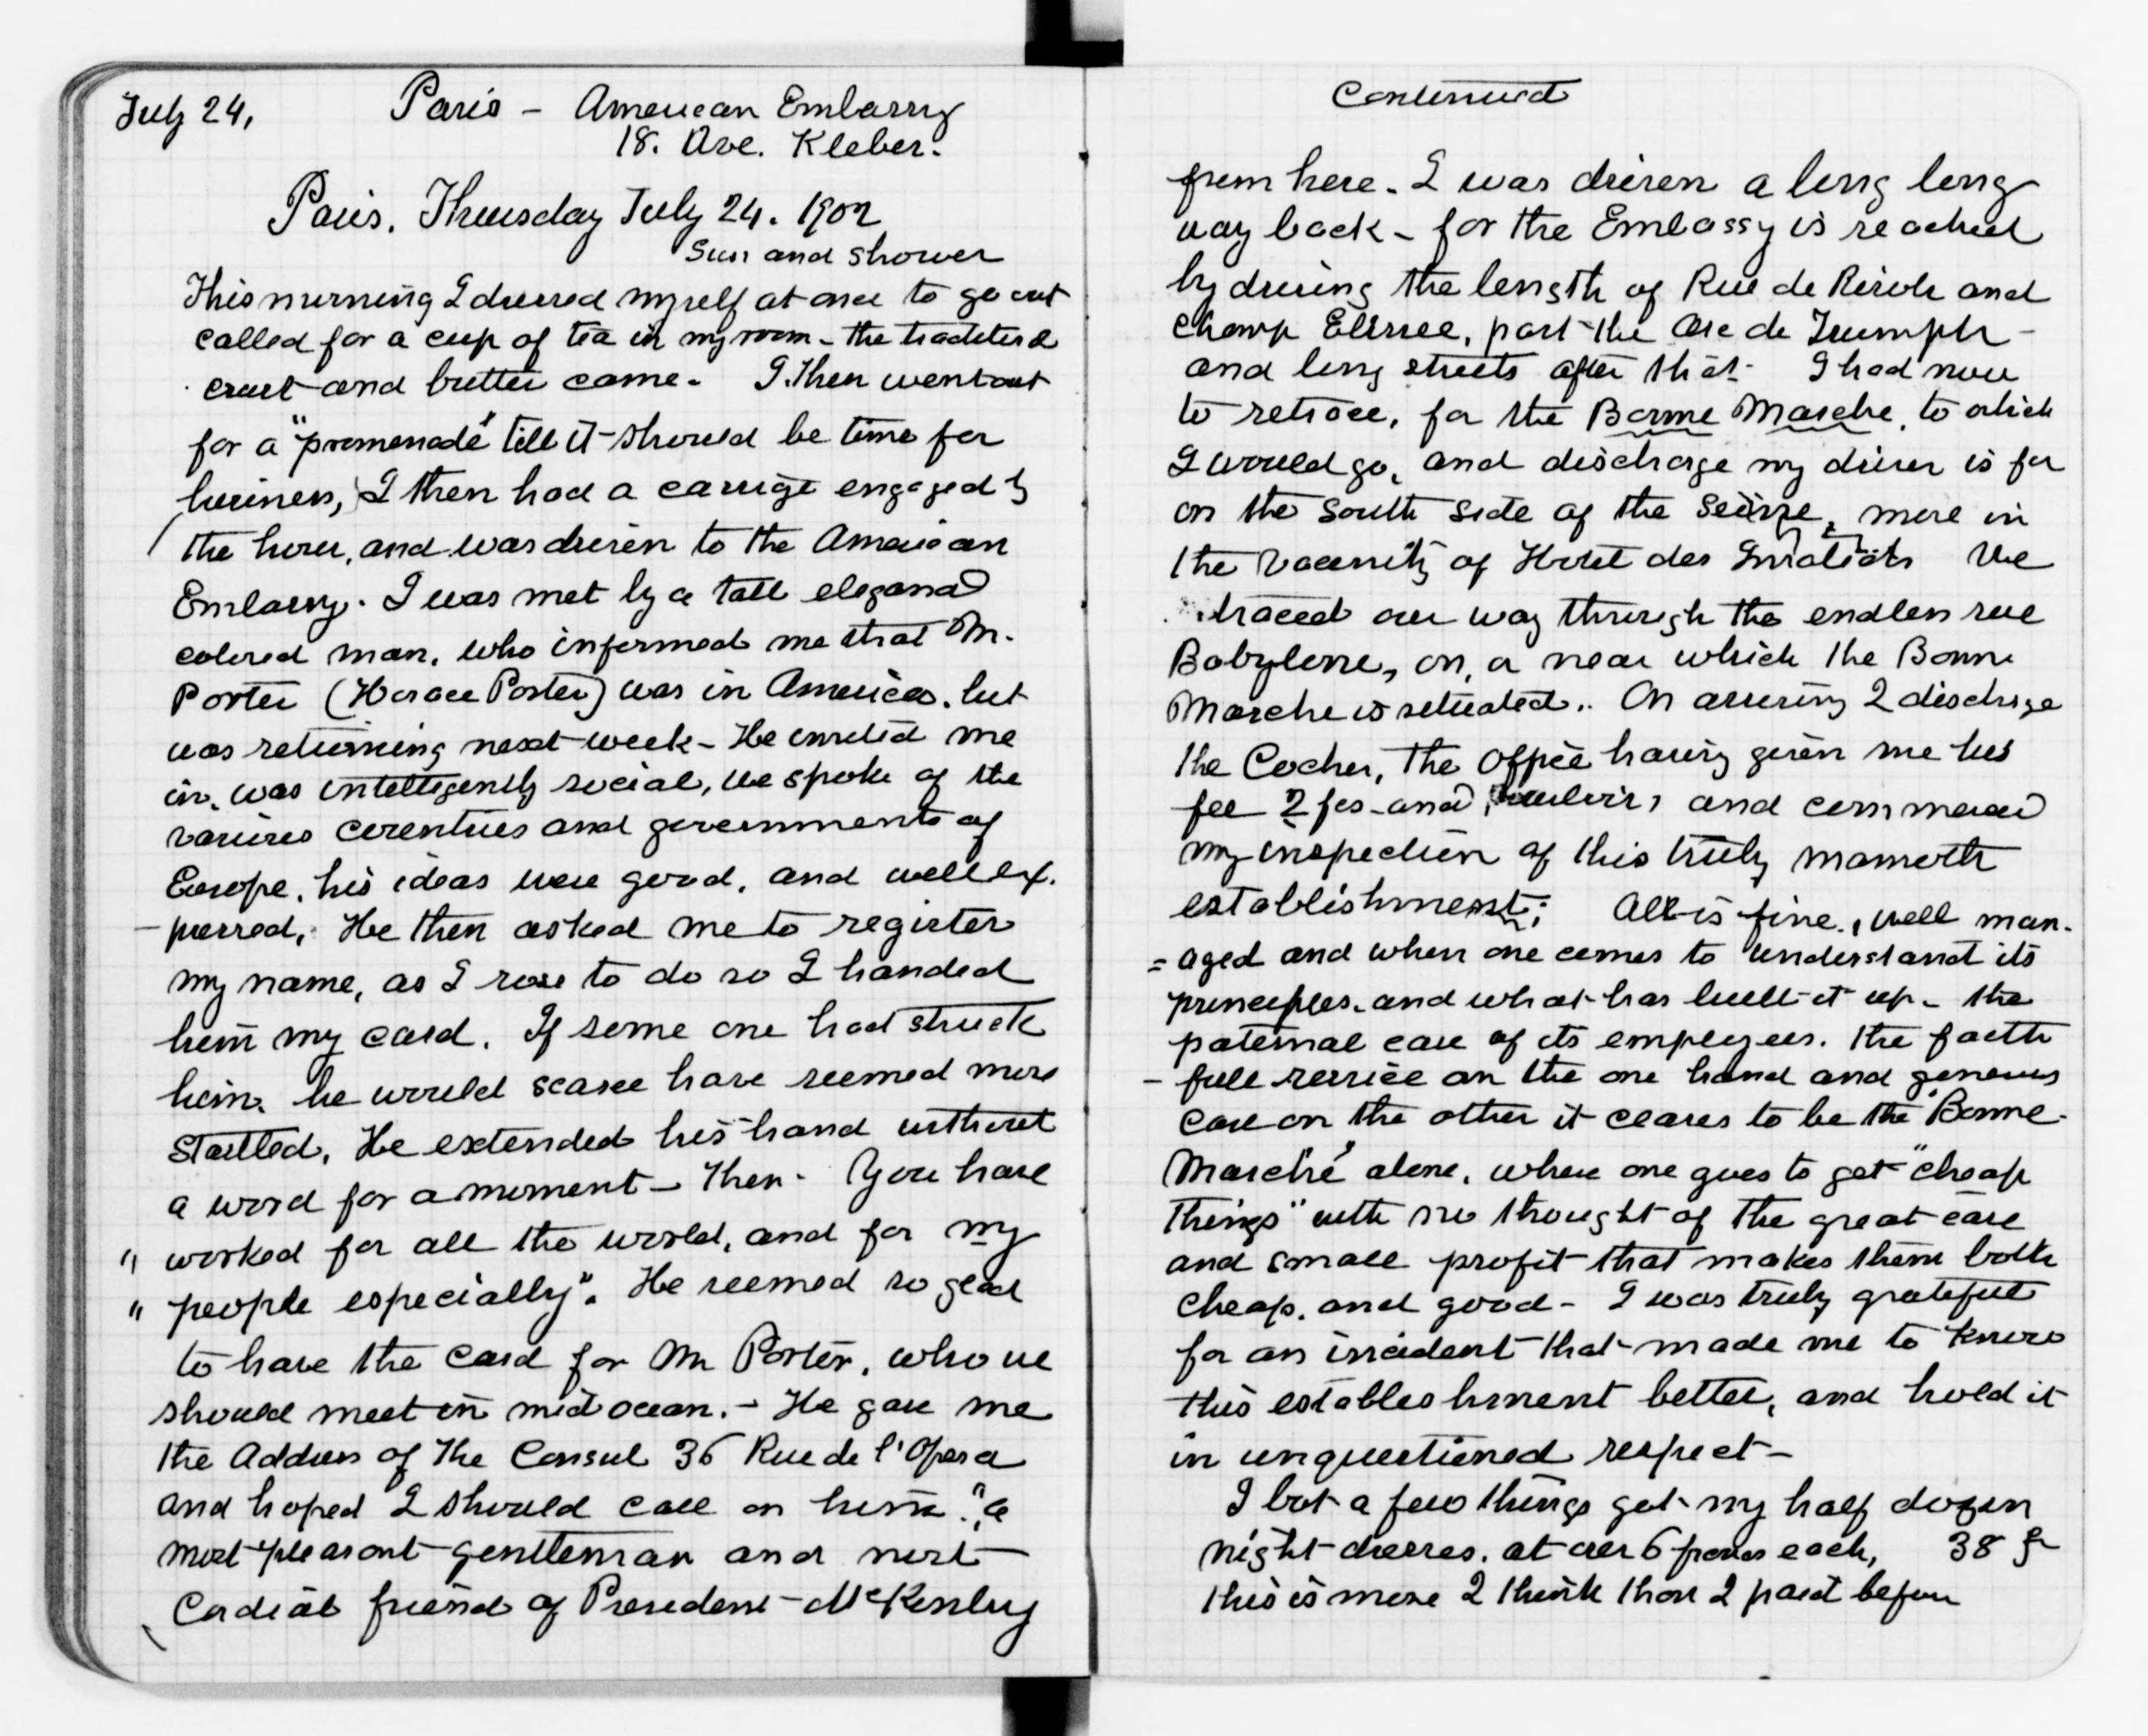 July 24,
Paris - American Embassy
18. Ave. Kleber.
Paris. Thursday July 24. 1902
Sun and shower
This morning I dressed myself at once to go out
called for a cup of tea in my room - the traditional
crust and butter came. I then went out
for a "promenade" till it should be time for
business, I then had a carrige engaged by
the hour, and was driven to the American
Embassy. I was met by a tall elegand
colored man, who informed me that Mr.
Porter (Horace Porter) was in America, but
was returning next week - He invited me
in, was intelligently social, we spoke of the
various countries and governments of
Europe, his ideas were good, and well ex.
- pressed, He then asked me to register
my name, as I rose to do so I handed
him my card. If some one had struck
him, he would scarce have seemed more
startled, He extended his hand without
a word for a moment - Then - You have
" worked for all the world, and for my
" people especially". He seemed so glad
to have the card for Mr Porter, who we
should meet in mid ocean. - He gave me
the Address of The Consul 36 Rue de l'Opera
and hoped I should call on him. "a
most pleasant gentleman and most
Cordial friend of President McKenley
Continued
from here. I was driven a long long
way back - for the Embassy is reached
by driving the length of Rue de Rivole and
Champ Elissee, past the Arc de Triumph -
and long streets after that. I had now
to retrace, for the Bonne Marche, to which
I would go, and discharge my driver is far
on the South side of the Seine, more in
the vacenity of Hotel des Invalids We
traced our way through the endless rue
Babylone, on, a near which the Bonne
Marche is setuated.. On arriving I discharge
the Cocher, the Office having given me his
fee 2 fcs - and and commenced
my inspection of this truly mamoth
establishment; All is fine., well man.
= aged and when one comes to understand its
principles, and what has built it up - the
paternal care of its employees. the faith
- full service on the one hand and generous
care on the other it ceares to be the "Bonne
Marché" alone, where one goes to get "cheap
things" with no thought of the great care
and small profit that makes them both
cheap, and good - I was truly grateful
for an incident that made me to know
this establishment better, and hold it
in unquestioned respect -
I bot a few things got my half dozen
night dresses, at over 6 francs each, 38 fr
this is more I think than I paid before